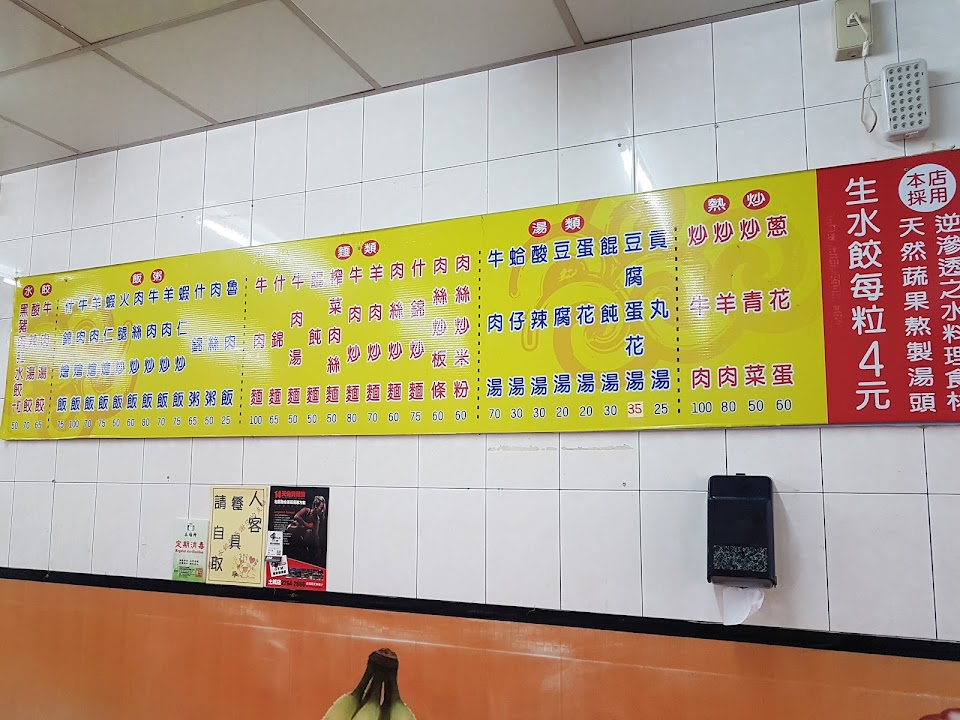 水餃
酸辣湯餃 70
牛肉湯餃 65
飯粥
什錦燴飯 75
牛肉燴飯 100
羊肉燴飯 70
蝦仁燴飯 75
火腿炒飯 60
肉絲炒飯 60
牛肉炒飯 80
羊肉炒飯 70
蝦仁炒飯 75
什錦粥 65
肉絲粥 50
魯肉飯 25
麵類
牛肉麵 100
什錦麵 65
牛肉湯麵 50
餛飩麵 50
榨菜肉絲麵 50
牛肉炒麵 80
羊肉炒麵 70
肉絲炒麵 60
什錦炒麵 75
肉絲炒板條 60
肉絲炒米粉 60
湯類
牛肉湯 70
蛤仔湯 30
酸辣湯 30
豆腐湯 20
蛋花湯 20
餛飩湯 30
豆腐蛋花湯 35
貢丸湯 25
熱炒
炒牛肉 100
炒羊肉 80
炒青菜 50
蔥花蛋 60
生水餃每粒4元
本店採用
逆滲透之水料理食材
天然蔬果熬製湯頭
定期消毒
人客
餐具
請自取